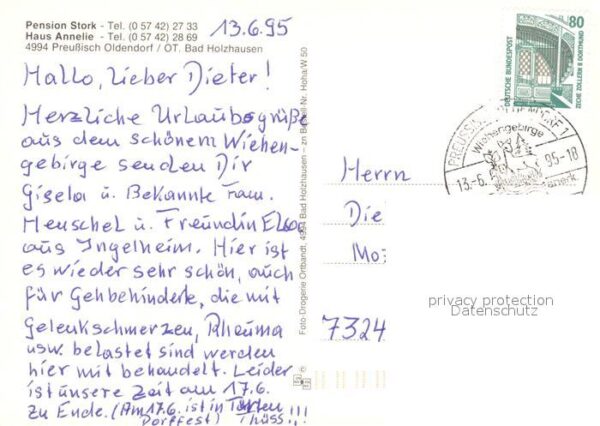 Pension Stork - Tel. (0 57 42) 27 33
Haus Annelie - Tel. (0 57 42) 28 69
4994 Preußisch Oldendorf / OT. Bad Holzhausen
13.6.95
Hallo, lieber Dieter!
Herzliche Urlaubsgrüße
aus dem schönem Wiehen-
gebirge senden Dir
Gisela u. Bekannte Fam.
Henschel u. Freundin Elsa
aus Ingelheim. Hier ist
es wieder sehr schön, auch
für Gehbehinderte, die mit
Gelenkschmerzen, Rheuma
usw. belastet sind werden
hier mit behandelt. Leider
ist unsere Zeit am 17.6.
zu Ende. (Am 17.6. ist in
Dorffest) Tschüss!!!
Foto-Drogerie Ortbandt, 4994 Bad Holzhausen - zu Bestell-Nr. Hoha/W 50
80
DEUTSCHE BUNDESPOST
ZECHE ZOLLERN II DORTMUND
1
Wiehengebirge
13.-6. 95-18
Herrn
Die
Mo
7324
privacy protection
Datenschutz